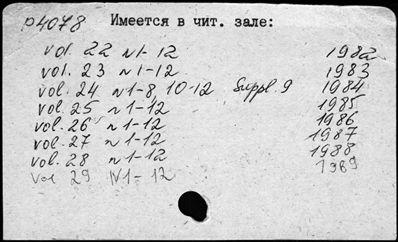 p4078 Имеется в чит. зале:
vol. 22 N1-12 1982
vol. 23 N1-12 1983
vol. 24 N1-8, 10-12 Suppl 9 1984
vol. 25 N1-12 1985
vol. 26 N1-12 1986
vol. 27 N1-12 1987
vol. 28 N1-12 1988
vol 29 N1-12 1989